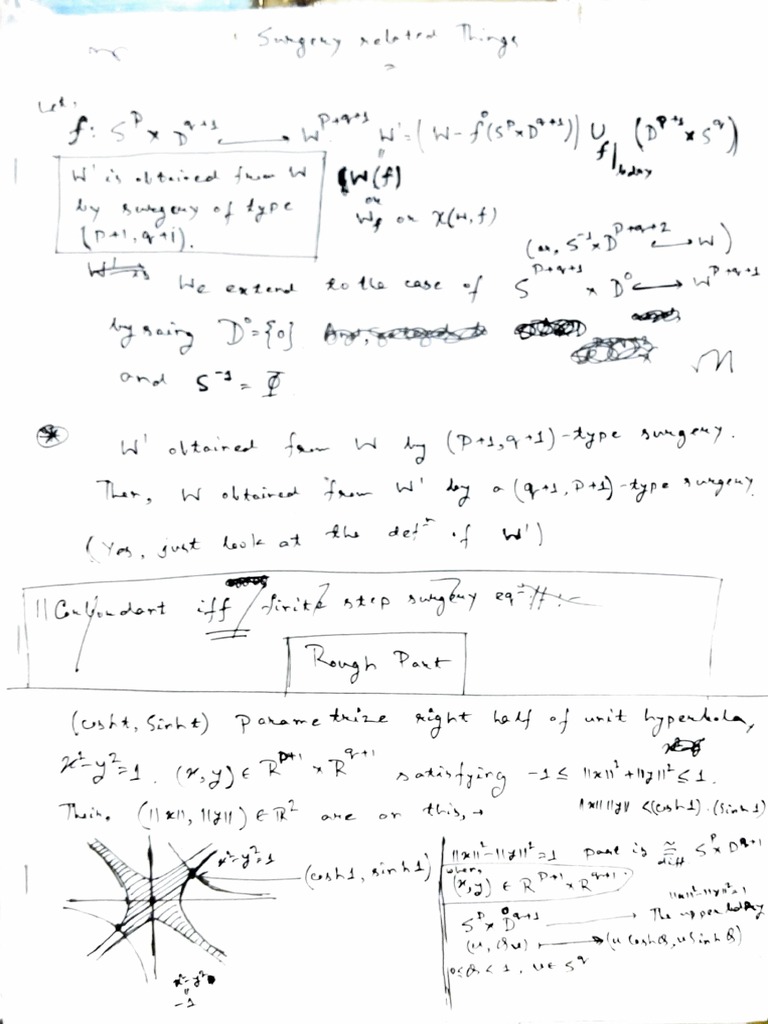 Surgery related Things
Let,
f: S^p × D^{q+1} ⟶ W^{p+q+1} W' = (W - f(S^p × D°^{q+1})) ∪_{f|bdry} (D^{p+1} × S^q)
W' is obtained from W
by surgery of type
(p+1, q+1).
W(f)
or
W_f or χ(W, f)
(or, S^{-1} × D^{p+q+2} ⟶ W)
We extend to the case of S^{p+q+1} × D^0 ⟶ W^{p+q+1}
by saing D^0 = {0}
and S^{-1} = Φ
W' obtained from W by (p+1, q+1)-type surgery.
Then, W obtained from W' by a (q+1, p+1)-type surgery
(Yes, just look at the def^n of W')
|| Cobordant iff finite step surgery eq
Rough Part
(cosh t, sinh t) parametrize right half of unit hyperbola,
x²-y²=1. (x, y) ∈ R^{p+1} × R^{q+1} satisfying -1 ≤ ||x||²+||y||² ≤ 1.
Then, (||x||, ||y||) ∈ R² are on this, →
||x|| ||y|| < (cosh 1).(sinh 1)
x²-y²=1
(cosh 1, sinh 1)
x²-y²
=
-1
||x||²-||y||²=1 part is ≅_{diff} S^p × D^{q+1}
where,
(x, y) ∈ R^{p+1} × R^{q+1}.
||x||²-||y||²=1
S^p × D°^{q+1} ⟶ The upper bdry
(u, θv) ⟼ (u cosh θ, v sinh θ)
0≤θ<1, v∈S^q